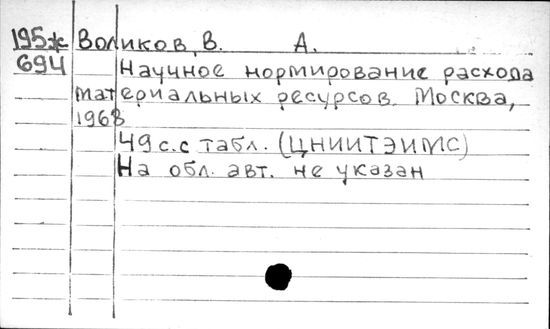 195ж Воликов, В. А.
694 Научное нормирование расхода
материальных ресурсов. Москва,
1968
49 с. с табл. (ЦНИИТЭИМС)
На обл. авт. не указан